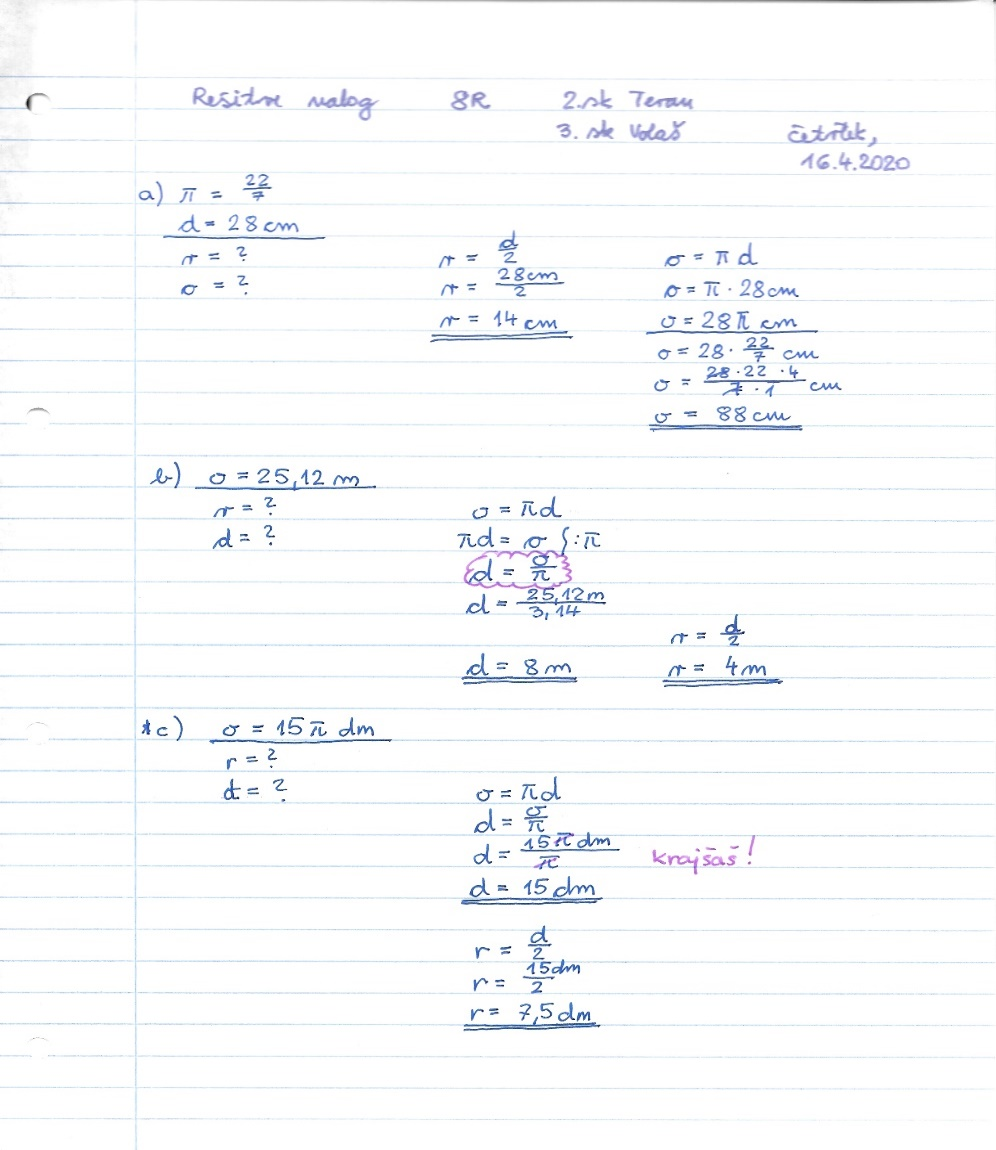 Rešitve nalog 8R 2. sk Teran
3. sk Volaš četrtek,
16.4.2020
a) π = 22/7
d = 28 cm
r = ?
o = ?
r = d/2
r = 28cm/2
r = 14 cm
o = π d
o = π · 28cm
o = 28 π cm
o = 28 · 22/7 cm
o = 28 · 22 · 4 / 7 · 1 cm
o = 88 cm
b) o = 25,12 m
r = ?
d = ?
o = πd
πd = o /:π
d = o/π
d = 25,12m/3,14
d = 8 m
r = d/2
r = 4 m
*c) o = 15 π dm
r = ?
d = ?
o = πd
d = o/π
d = 15 π dm/π krajšaš!
d = 15 dm
r = d/2
r = 15dm/2
r = 7,5 dm